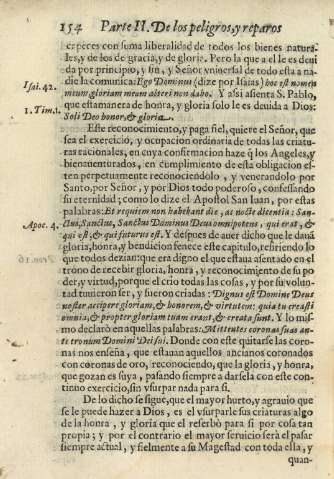 154 Parte II. De los peligros, y reparos
cer peces con suma liberalidad de todos los bienes natura-
les, y de los de gracia, y de gloria. Pero la que a el le es deui
da por principio, y fin, y Señor vniuersal de todo esta a na-
die la comunica: Ego Dominus (dize por Isaias) hoc est nomen
Isai. 42.
meum gloriam meum alteri non dabo. Y assi asienta S. Pablo,
que esta manera de honra, y gloria solo le es deuida a Dios:
1. Tim. 1.
Soli Deo honor, & gloria.
Este reconocimiento, y paga fiel, quiere el Señor, que
sea el exercicio, y ocupacion ordinaria de todas las criatu-
ras racionales, en cuya confirmacion haze q̃ los Angeles, y
bienauenturados, en cumplimiento de esta obligacion es-
ten perpetuamente reconociendolo, y venerandolo por
Santo, por Señor, y por Dios todo poderoso, confessando
su eternidad; como lo dize el Apostol San Iuan, por estas
palabras: Et requiem non habebant die, ac nocte dicentia: San-
Apoc. 4.
ctus, Sanctus, Sanctus Dominus Deus omnipotens, qui erat, &
qui est, & qui futurus est. Y despues de auer dicho que le dauã
gloria, honra, y bendicion fenece este capitulo, refiriendo lo
que todos dezian: que era digno el que estaua asentado en el
trono de recebir gloria, honra, y reconocimiento de su po
der, y virtud, porque el crio todas las cosas, y por su volun-
tad tuuieron ser, y fueron criadas: Dignus est Domine Deus
noster accipere gloriam, & honorem, & virtutem: quia tu creasti
omnia, & propter gloriam tuam erant, & creata sunt. Y lo mis-
mo declarò en aquellas palabras: Mittentes coronas suas an-
te tronum Domini Dei sui. Donde con este quitarse las coro-
nas nos enseña, que estauan aquellos ancianos coronados
con coronas de oro, reconociendo, que la gloria, y honra,
que gozan es suya, pasando siempre a darsela con este con-
tinuo exercicio, sin vsurpar nada para si.
De lo dicho se sigue, que el mayor hurto, y agrauio que
se le puede hazer a Dios, es el vsurparle sus criaturas algo
de la honra, y gloria que el reserbò para si por cosa tan
propia; y por el contrario el mayor seruicio serà el pasar
siempre actual, y fielmente a su Magestad con toda ella, y
quan-